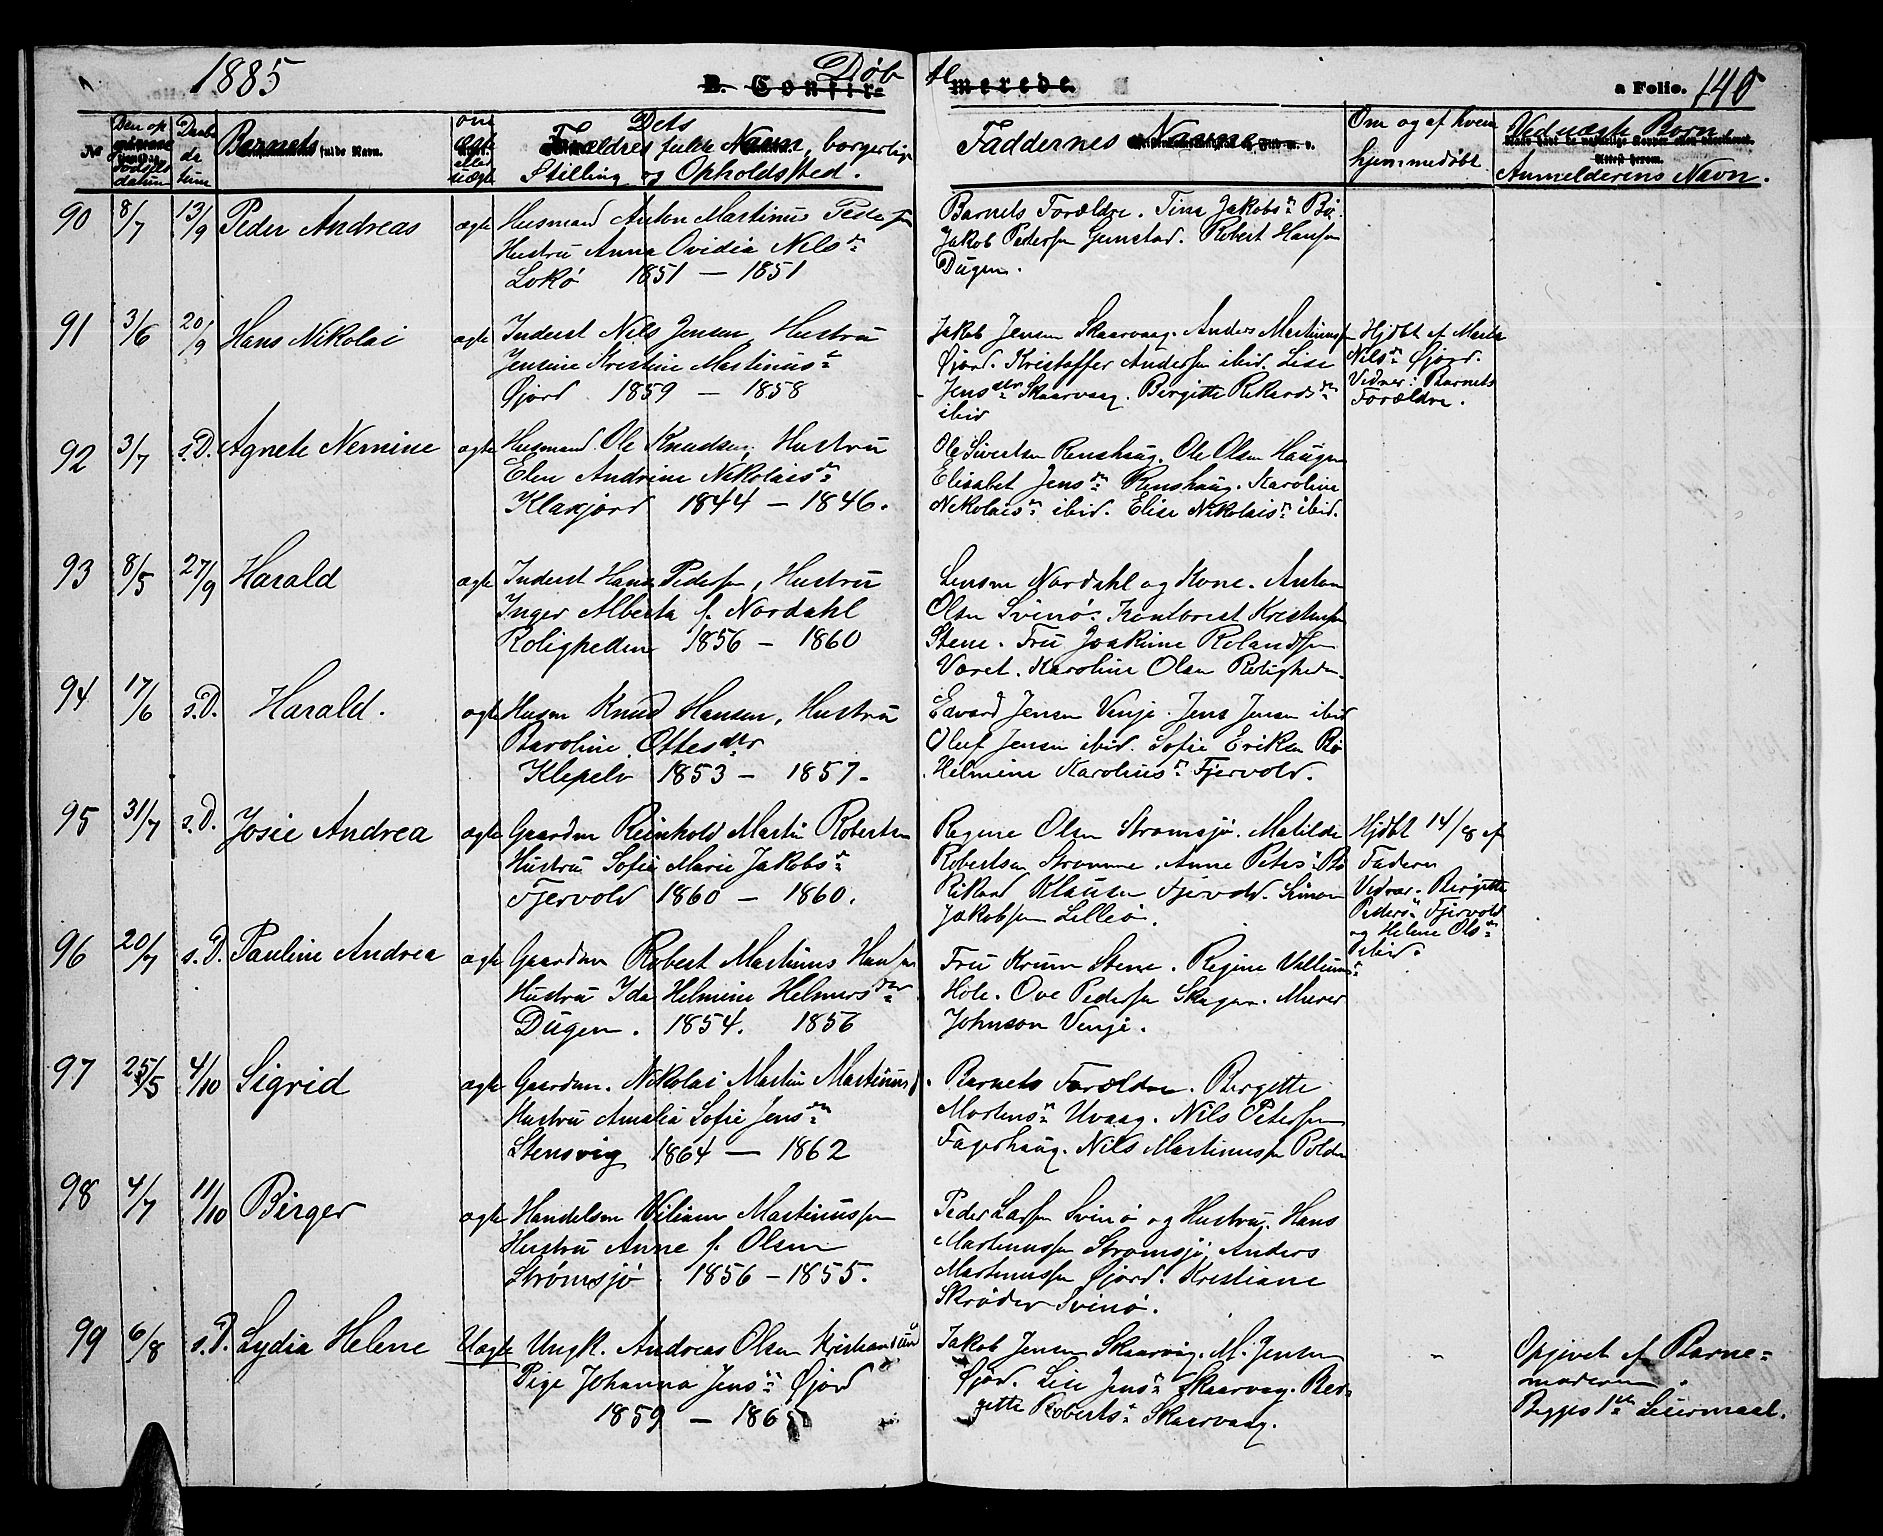 1885 Døb te a Folio. 140
B. Confir= merede.
No Barnets fulde Navn. Dets Forældres fulde Navn, borgerlige Stilling og Opholdssted. Faddernes Navne Om og af hvem hjemmedøbt Ved uægte Born Anmelderens Navn.
90 8/7 13/9 Peder Andreas ægte Husmand Anton Martinus
Hustru Anna Ovidia Nilsdr
Lokø 1851 – 1851
Barnets Forældre. Tina Jakobsdr Bø.
Jakob Pedersen Gunstad. Robert Hansen
Dugen.
91 3/6 20/9 Hans Nikolai ægte Inderst Nils Jensen, Hustru
Jensine Kristine Martinusdr
Øjord 1859 – 1858
Jakob Jensen Skaarvaag. Anders Martinussen
Øjord. Kristoffer Andersen ibid. Lise
Jensdtr Skaarvaag. Bergitte Rikardsdtr
ibid
Hjdbt af Marta
Nilsdr Øjord.
Vidner: Barnets
Forældre.
92 3/7 s.D. Agnete Nemine ægte Husmand Ole Knudsen, Hustru
Elen Andrine Nikolaisdr
Klakjord 1844 – 1846.
Ole Sivertsen Renshaug. Ole Olsen Haugen
Elisabet Jensdr Renshaug. Karoline
Nikolaisdr ibid. Elise Nikolaisdr ibid.
93 8/5 27/9 Harald ægte Inderst Hans Pedersen, Hustru
Inger Alberta f. Nordahl
Roligheden 1856 – 1860
Lensm Nordahl og Kone. Anton
Olsen Svinø. Kontorist Kristensen
Stene. Fru Joakime Rolandsen
Været. Karoline Olsen Roligheden
94 17/6 s.D. Harald. ægte Husm Knud Hansen, Hustru
Baroline Ottesdtr
Klepelv 1853 – 1857.
Edvard Jensen Vinje. Jens Jensen ibid
Oluf Jensen ibid. Sofie Eriksen Bø
Helmine Karoliusdr Fjervold.
95 31/7 s.D. Josie Andrea ægte Gaardm Reinhold Martin Robertsen
Hustru Sofie Marie Jakobsdr
Fjervold 1860 – 1860.
Regine Olsen Stromsjø. Matilde
Robertsen Stromme. Anne Petersdr Bø
Rikard Klausen Fjervold. Simon
Jakobsen Lilleø.
Hjdbt 14/8 af
Faderen
Vidner. Birgitte
Pedersdr Fjervold
og Helene Olsdr
ibid.
96 20/7 s.D. Pauline Andrea ægte Gaardm Robert Martinus Hansen
Hustru Ida Helmine Helmersdtr
Dugen. 1854. 1856
Fru Krum Stene. Regine Villumsdr
Hole. Ove Pedersen Skagen. Murer
Johnson Vinje.
97 25/5 4/10 Sigrid ægte Gaardm. Nikolai Martin Martinus
Hustru Amalia Sofie Jensdr
Stensvig 1864 – 1862
Barnets Forældre. Bergitte
Martensdr Uvaag. Nils Petersen
Fagerhaug. Nils Martinussen Polden
98 4/7 11/10 Birger ægte Handelsm Viliam Martinussen
Hustru Anne f. Olsen
Strømsjø 1856 – 1855.
Peder Larsen Svinø og Hustru. Hans
Martinussen Stromsjø, Anders
Martinussen Øjord. Kristiane
Skrøder Svinø.
99 6/8 s.D. Lydia Helene Uægte Ungk. Andreas Olsen Kristiansund
Pige Johanna Jensdr Øjord
1859 –
Jakob Jensen Skaarvag. M. Jensen
Øjord. Lise Jensdr Skaarvag. Ber-
gitte Robertsdr Skaarvaag.
Opgivet af Barne=
moderen.
Begges 1ste Leiermaal.